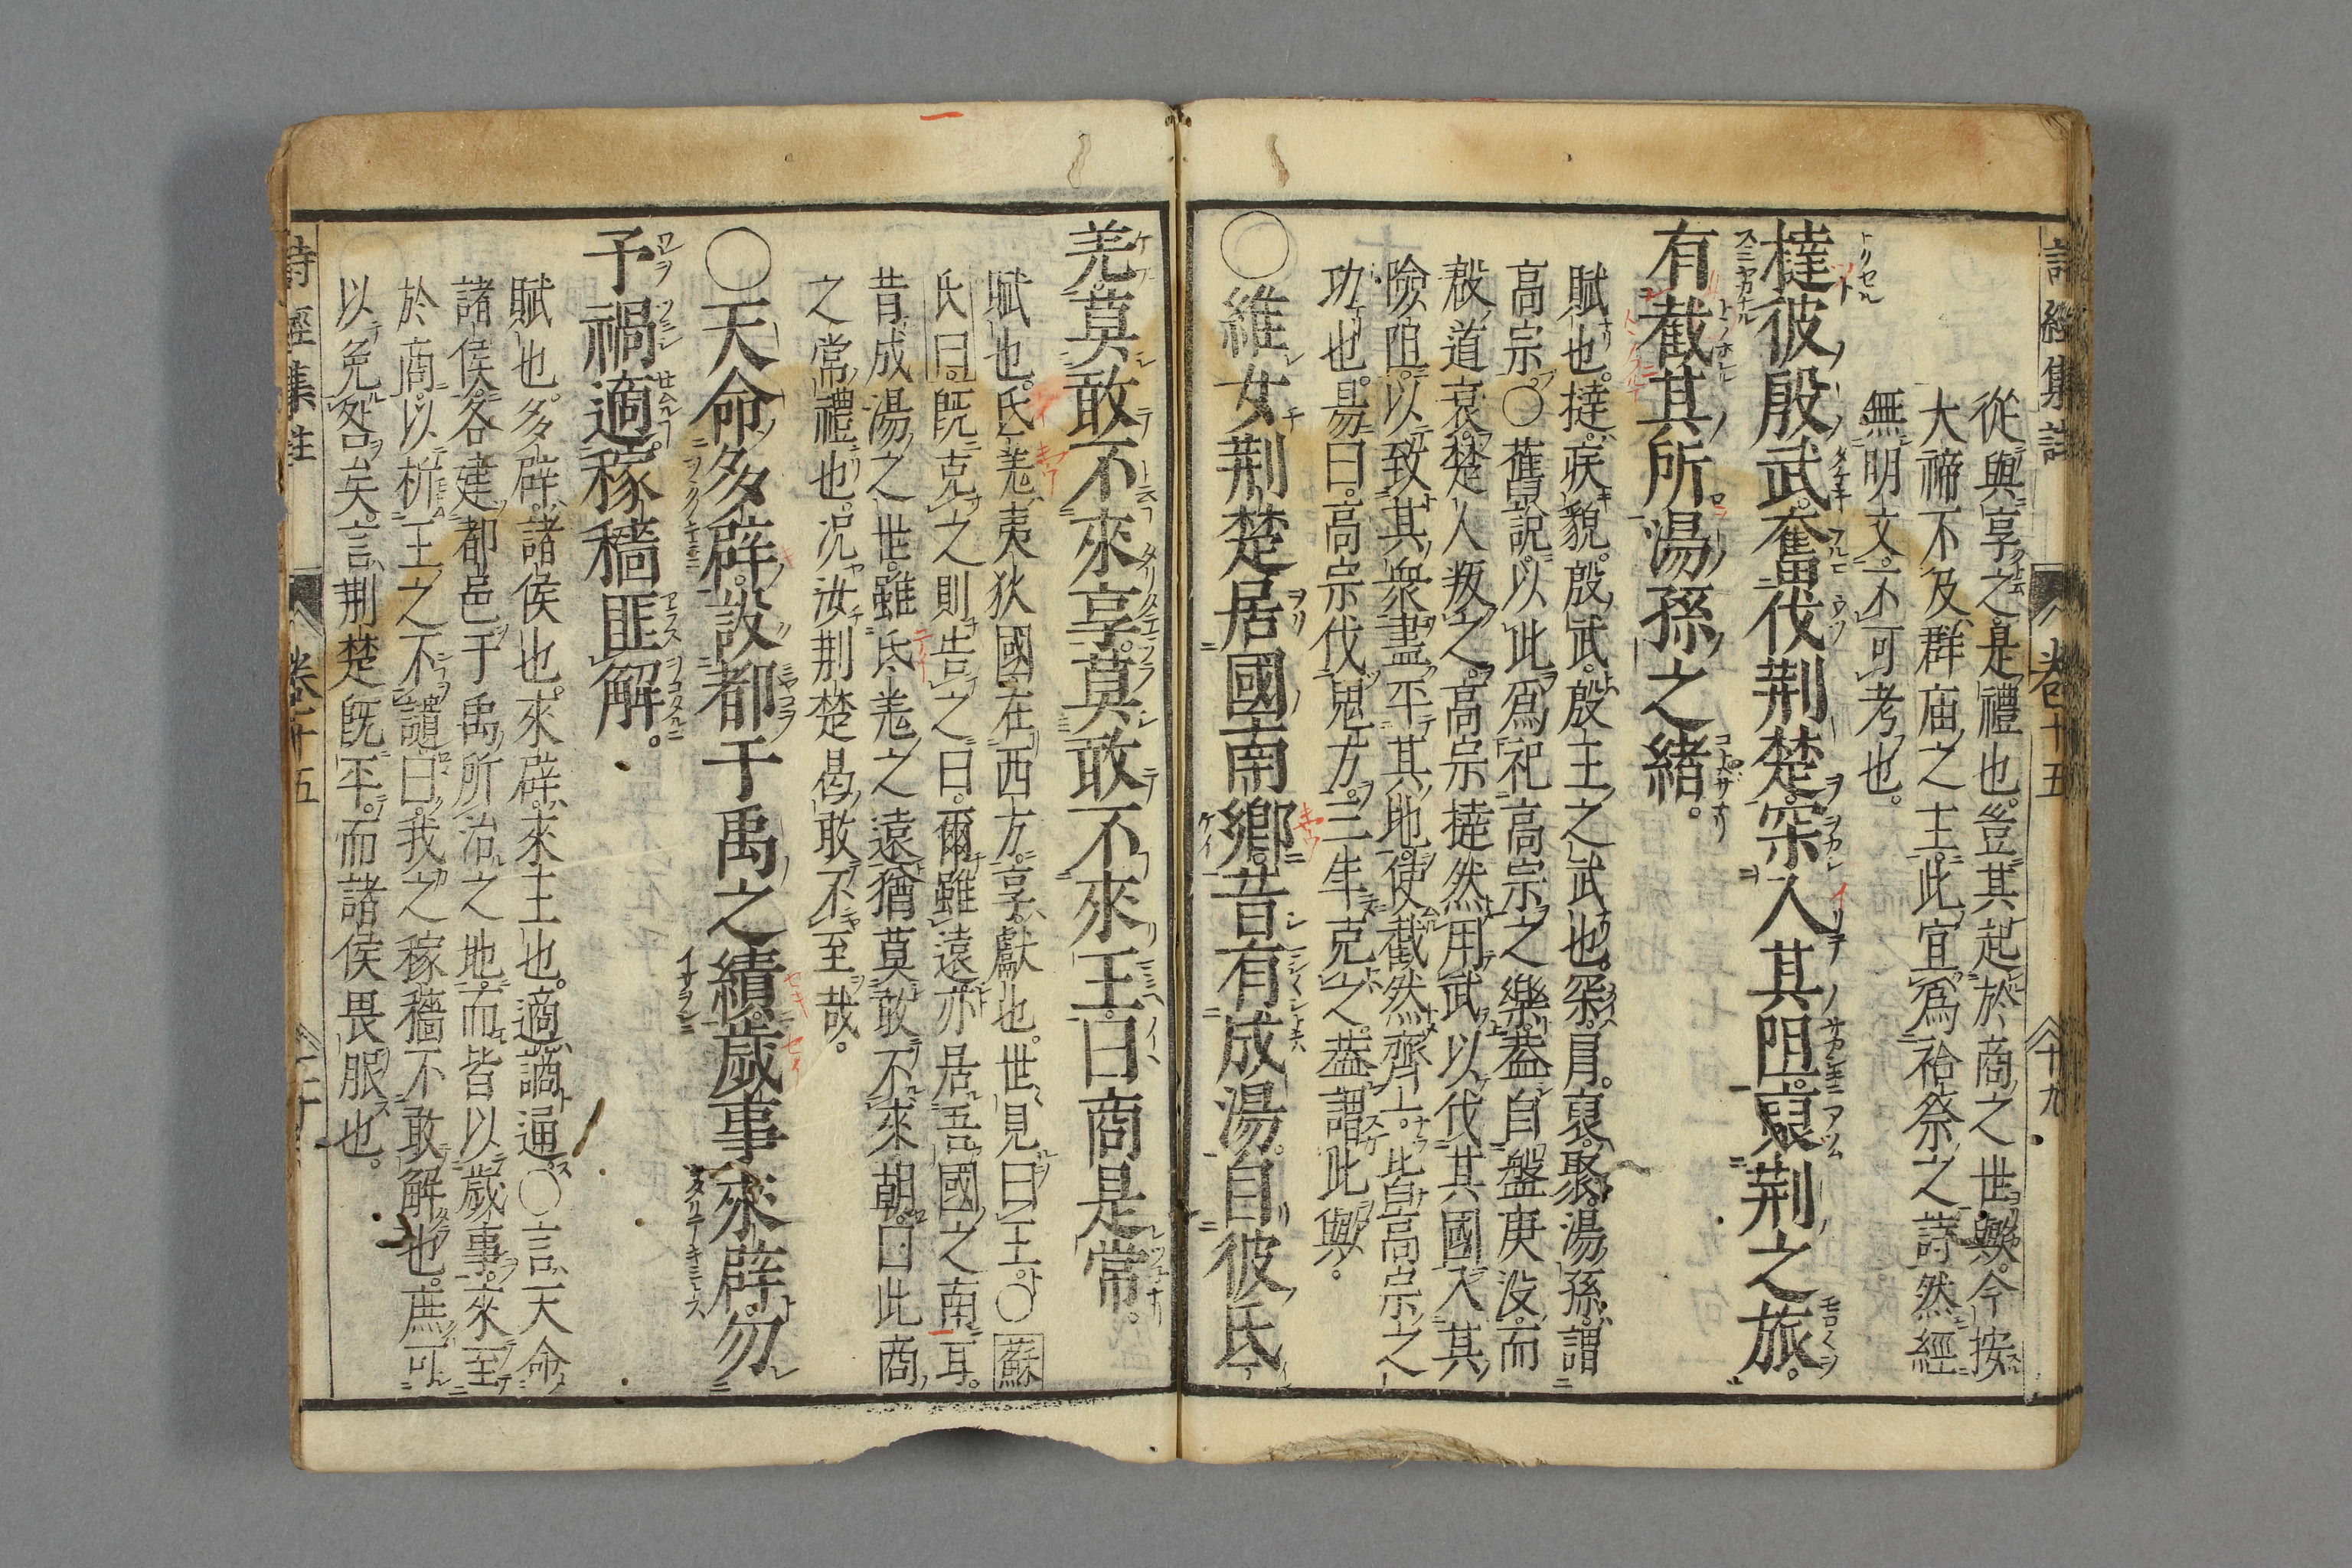 詩經集註 卷十五 十九
從與享之是禮也。豈其起於商之世歟。今按
大禘不及群庙之主。此宜爲祫祭之詩。然經
無明文。不可考也。
撻彼殷武。奮伐荆楚。罙入其阻。裒荆之旅。
有截其所。湯孫之緒。
賦也。撻。疾貌。殷武。殷王之武也。罙。冐。裒。聚。湯孫。謂
高宗。〇舊說。以此爲祀高宗之樂。盖自盤庚没。而
殷道衰。楚人叛之。高宗撻然用武。以伐其國。入其
險阻。以致其衆。盡平其地。使截然齊一。皆高宗之
功也。易曰。高宗伐鬼方。三年克之。盖謂此與。
〇維女荆楚。居國南鄉。昔有成湯。自彼氐
羌。莫敢不來享。莫敢不來王。曰商是常。
賦也。氐羌。夷狄國在西方。享。獻也。世見曰王。〇蘇
氏曰。旣克之。則告之曰。爾雖遠。亦居吾國之南耳。
昔成湯之世。雖氐羌之遠。猶莫敢不來朝。曰此商
之常禮也。况汝荆楚。曷敢不至哉。
〇天命多辟。設都于禹之績。歲事來辟。勿
予禍適。稼穡匪解。
賦也。多辟。諸侯也。來辟。來王也。適。謫通。〇言。天命
諸侯各建都邑于禹所治之地。而皆以歲事。來至
於商。以祈王之不譴。曰。我之稼穡不敢解也。庶可
以免咎矣。言。荆楚旣平。而諸侯畏服也。
詩經集註 卷十五